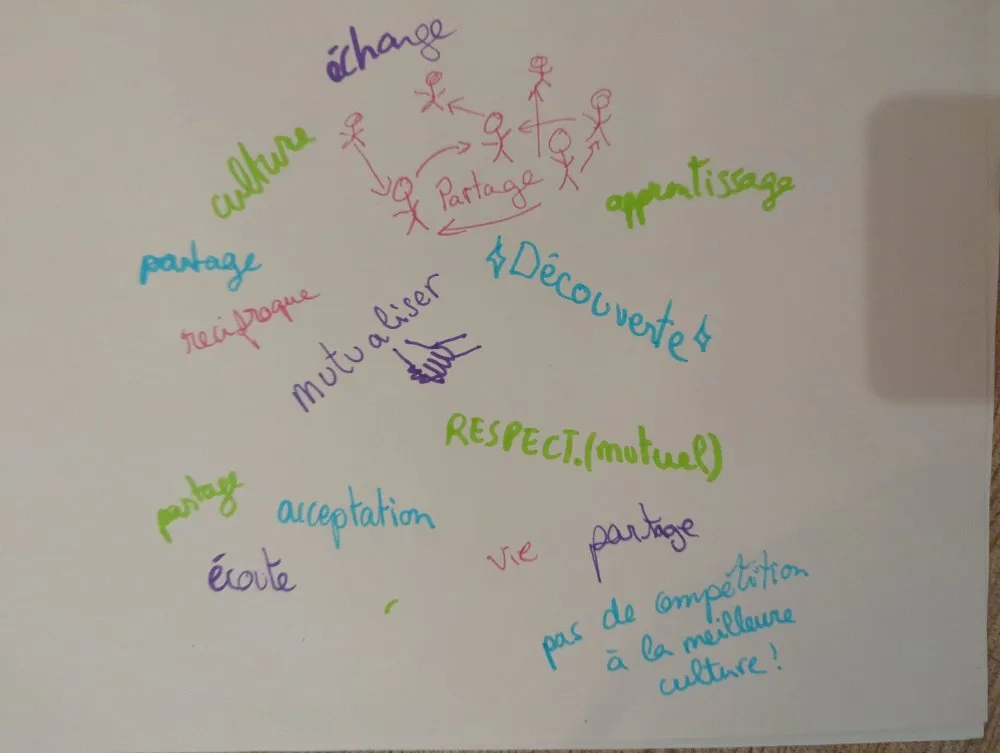 échange
culture
Partage
apprentissage
partage
Découverte
reciproque
mutualiser
RESPECT. (mutuel)
partage
acceptation
écoute
vie
partage
pas de compétition
à la meilleure
culture !